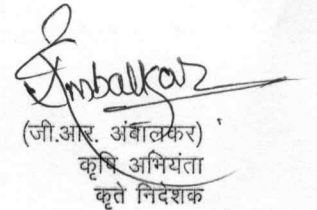 Ambalkar
(जी.आर. अंबालकर)
कृषि अभियंता
कृते निदेशक